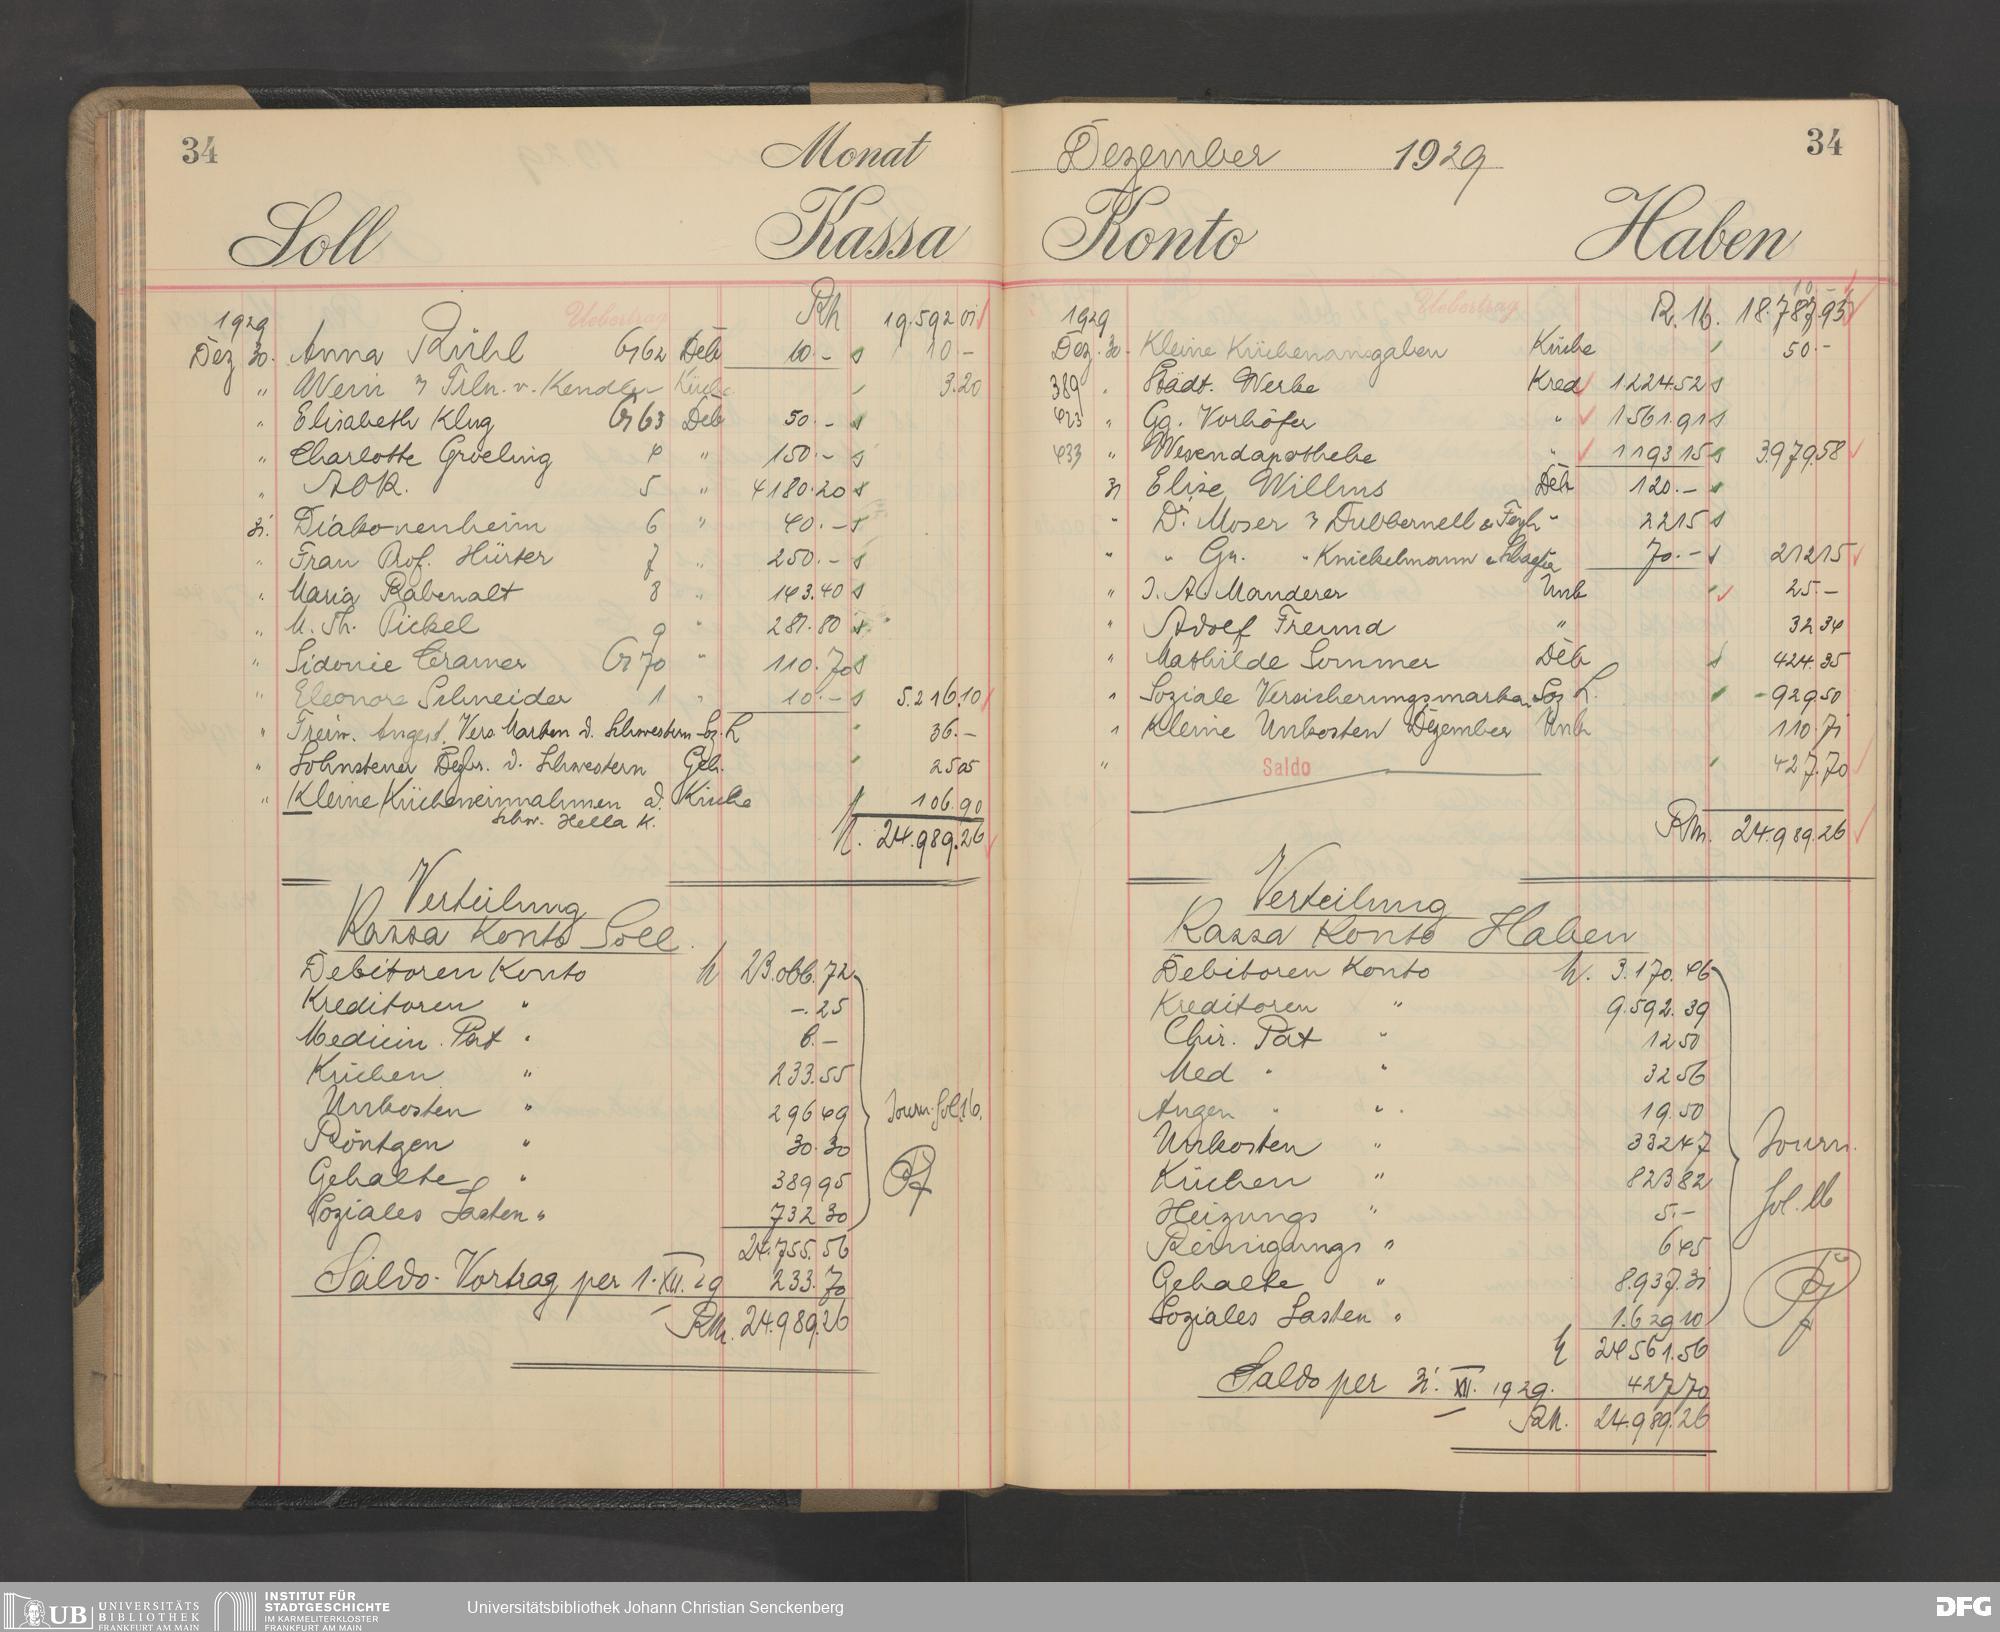 34
Monat
Soll
Kassa
1929 Uebertrag RM 19.592 01
Dez 30. Anna Rühl G 62 Deb 10.- 10.-
" Wein Frln. v. Kendler Küche 3.20
" Elisabeth Klug G 63 Deb 50.-
" Charlotte Groeling 4 " 150.-
" AOK. 5 " 4180.20
31. Diakonenheim 6 " 40.-
" Frau Prof. Hürter 7 " 250.-
" Maria Rabenalt 8 " 143.40
" M. Th. Pickel 9 " 281.80
" Sidonie Cramer G 70 " 110.70
" Eleonore Schneider 1 " 10.- 5.216.10
" Freiw. Angest. Vers Marken d. Schwestern Soz. L 36.-
" Lohnsteuer Dezbr. d. Schwestern Geh. 25 05
" Kleine Kücheneinnahmen d. Küche 106.90
Schw. Hella K.
M. 24.989.26
Verteilung
Kassa Konto Soll.
Debitoren Konto M 23.066.72
Kreditoren " -.25
Medicin. Pat " 6.-
Küchen " 233.55
Unkosten " 296 49
Journ. fol. 16.
Röntgen " 30.30
Gehalte " 389 95
Soziales Lasten " 732 30
24.755.56
Saldo-Vortrag per 1. XII. 29 233.70
RM. 24.989.26
Dezember 1929
34
Konto
Haben
1929 Uebertrag R.M. 18.787.93
Dez. 30. Kleine Küchenausgaben Küche 50.-
389 " Städt. Werke Kred 1224.52
423 " Gg. Vorhöfer " 1561.91
433 " Wesendapotheke " 1193 15 3.979.58
31 Elise Willms Deb 120.-
" Dr. Moser Dubbernell " 22 15
" " Gr. " Knickelmann 70.- 212 15
" J. A. Manderer Unk 25.-
" Adolf Freund " 32 34
" Mathilde Sommer Deb 424.35
" Soziale Versicherungsmarken Soz L. 929 50
" Kleine Unkosten Dezember Unk 110.71
" Saldo 427.70
RM. 24.989.26
Verteilung
Kassa Konto Haben
Debitoren Konto M. 3.170.46
Kreditoren " 9.592.39
Chir. Pat " 12 50
Med " " 32 56
Augen " " 19.50
Unkosten " 332 47
Journ.
Küchen " 823 82
fol. 16
Heizungs " 5.-
Reinigungs " 6 45
Gehalte " 8.937.31
Soziales Lasten " 1.629 10
M 24561.56
Saldo per 31. XII. 1929. 427 70
RM. 24.989.26
UB UNIVERSITÄTS BIBLIOTHEK FRANKFURT AM MAIN
INSTITUT FÜR STADTGESCHICHTE IM KARMELITERKLOSTER FRANKFURT AM MAIN
Universitätsbibliothek Johann Christian Senckenberg
DFG